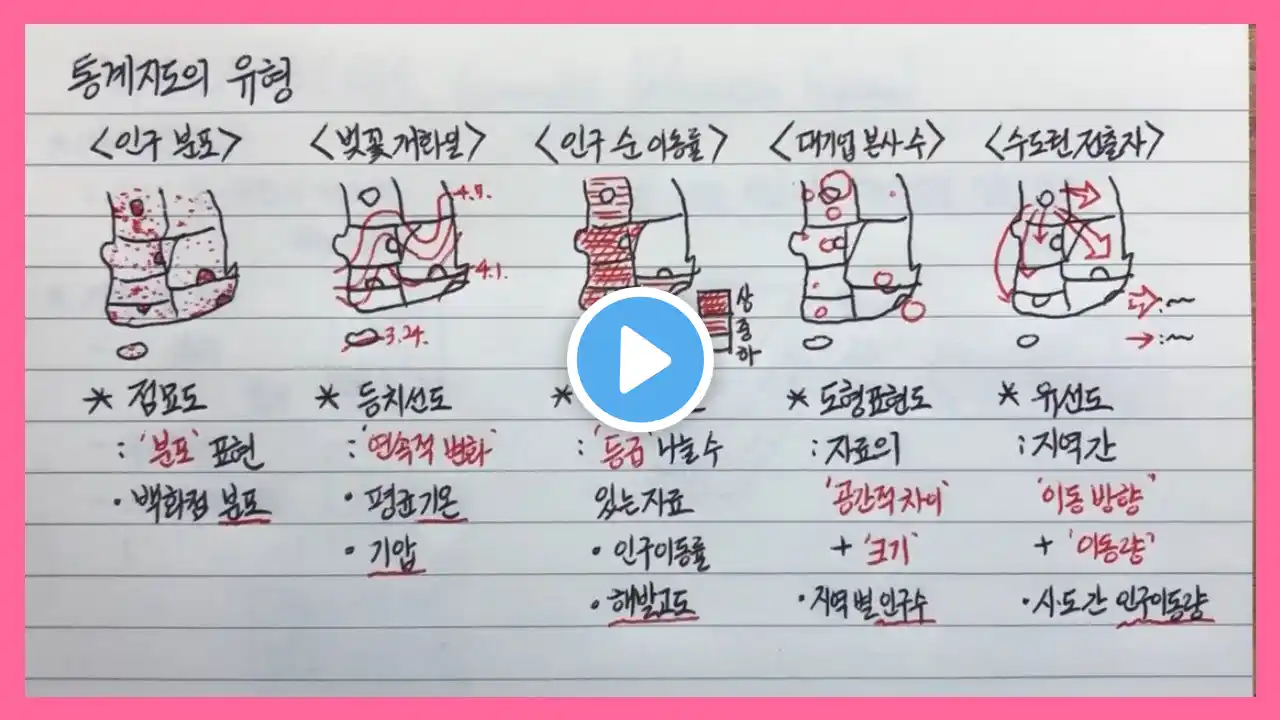 통계지도의 유형
<인구 분포>
4.7.
4.1.
3.24.
<벚꽃 개화일>
<인구 순 이동률>
상
중
하
<대기업 본사 수>
<수도권 전출자>
* 점묘도
: '분포' 표현
· 백화점 분포
* 등치선도
: '연속적 변화'
· 평균기온
· 기압
*
: '등급' 나눌 수
있는 자료
· 인구이동률
· 해발고도
* 도형표현도
: 자료의
'공간적 차이'
+ '크기'
· 지역별 인구수
* 유선도
: 지역 간
'이동 방향'
+ '이동량'
· 시·도 간 인구이동량